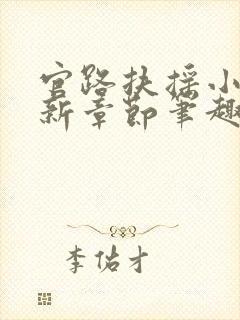 官路扶摇小
新章节笔趣
李佑才